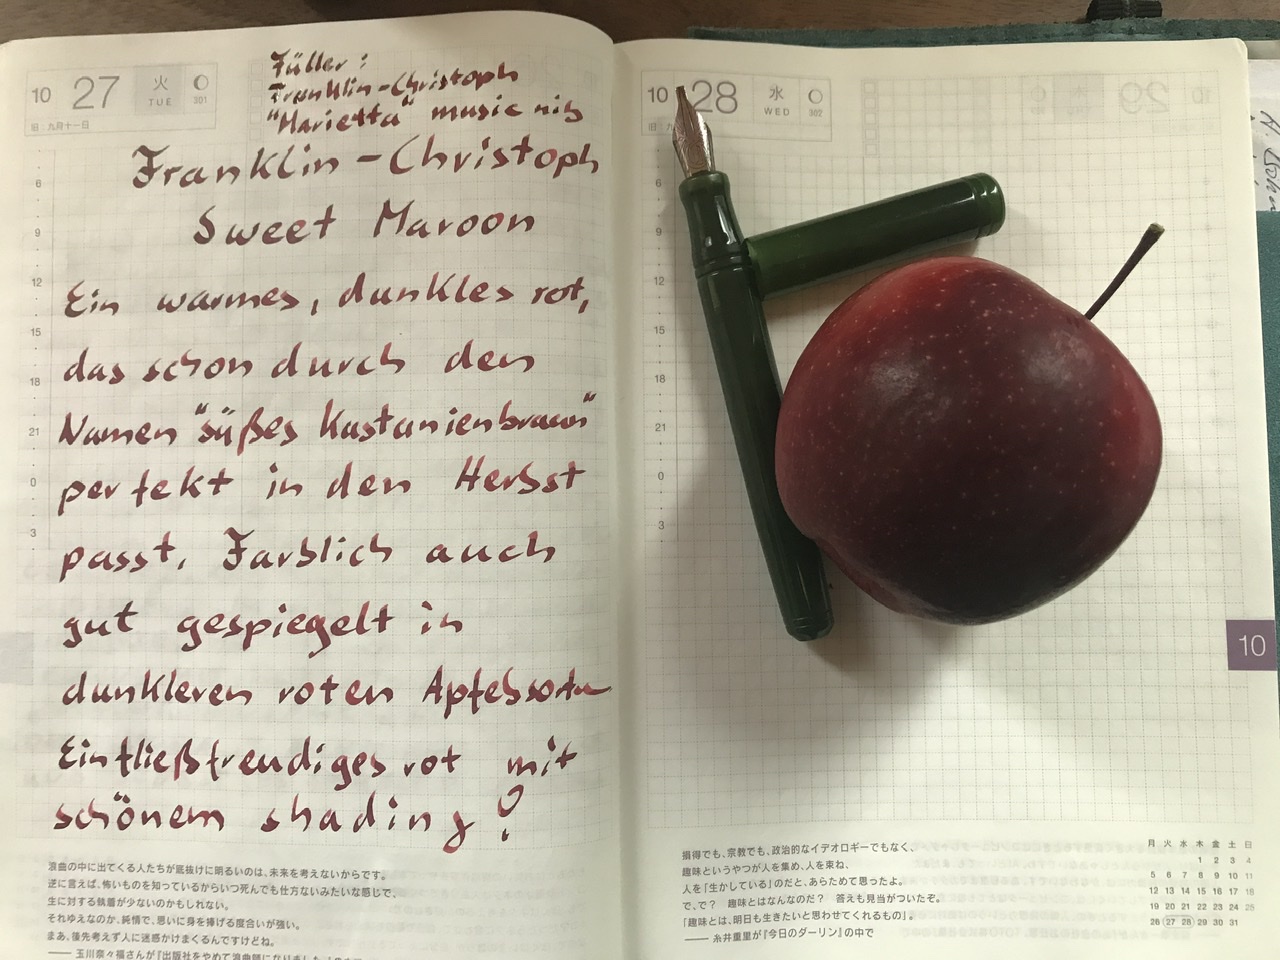 10 27 火 TUE 301
旧:九月十一日
Füller:
Franklin-Christoph
"Marietta" music nib
Franklin-Christoph
Sweet Maroon
Ein warmes, dunkles rot,
das schon durch den
Namen "süßes Kastanienbraun"
perfekt in den Herbst
passt. Farblich auch
gut gespiegelt in
dunkleren roten Apfelsorten
Ein fließfreudiges rot mit
schönem shading!
6
9
12
15
18
21
0
3
浪曲の中に出てくる人たちが底抜けに明るいのは、未来を考えないからです。
逆に言えば、怖いものを知っているからいつ死んでも仕方ないみたいな感じで、
生に対する執着が少ないのかもしれない。
それゆえなのか、純情で、思いに身を捧げる度合いが強い。
まあ、後先考えず人に迷惑かけまくるんですけどね。
—— 玉川奈々福さんが『出版社をやめて浪曲師になりました
10 28 水 WED 302
旧:九
6
9
12
15
18
21
0
3
10
損得でも、宗教でも、政治的なイデオロギーでもなく、
趣味というやつが人を集め、人を束ね、
人を「生かしている」のだと、あらためて思ったよ。
で、で? 趣味とはなんなのだ? 答えも見当がついたぞ。
「趣味とは、明日も生きたいと思わせてくれるもの」。
—— 糸井重里が『今日のダーリン』の中で
月 火 水 木 金 土 日
1 2 3 4
5 6 7 8 9 10 11
12 13 14 15 16 17 18
19 20 21 22 23 24 25
26 27 28 29 30 31